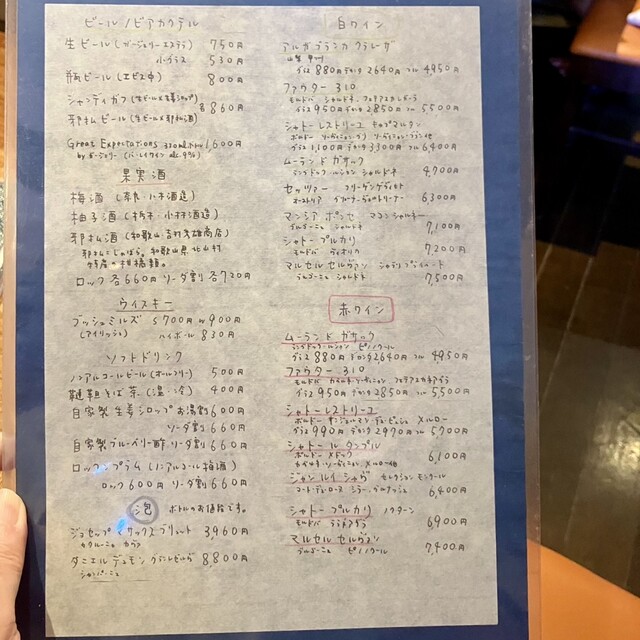 ビール/ビアカクテル
生ビール(ガージェリーエステラ) 750円
小グラス 530円
瓶ビール(エビス中) 800円
シャンディガフ(生ビール×生姜シロップ)
邪払ビール(生ビール×邪払酒) 各860円
Great Expectations 330mlボトル 1,600円
by ガージェリー(バーレイワイン alc.9%)
果実酒
梅酒(奈良・八木酒造)
柚子酒(栃木・小林酒造)
邪払酒(和歌山・吉村秀雄商店)
邪払=じゃばら。和歌山県北山村
特産の柑橘類。
ロック各660円 ソーダ割各720円
ウイスキー
ブッシュミルズ S700円 W900円
(アイリッシュ) ハイボール 830円
ソフトドリンク
ノンアルコールビール(オールフリー) 500円
韃靼そば茶(温・冷) 400円
自家製生姜シロップお湯割 600円
ソーダ割 660円
自家製ブルーベリー酢ソーダ割 660円
ロックンプラム(ノンアルコール梅酒)
ロック600円 ソーダ割660円
泡 ボトルのお値段です。
ジョセップ マサックス ブリュット 3,960円
カタルーニャ カヴァ
ダニエル デュモン グランレゼルヴ 8800円
シャンパーニュ
白ワイン
アルガブランカ クラレーザ
山梨 甲州
グラス880円 デカンタ2640円 フル4950円
ファウター310
モルドバ シャルドネ、フェテアスカレガーラ
グラス950円 デカンタ2850円 フル5500円
シャトーレストリーユ キャプマルタン
ボルドー ソーヴィニョン・グリ ソーヴィニョン・ブラン他
グラス1,100円 デカンタ3300円 フル6400円
ムーランド ガサック
ラングドック・ルーション シャルドネ 4700円
セッツァー フリーゲンゲヴィヒト
オーストリア グリューナーヴェルトリーナー 6300円
マンシア ポンセ マコン シャルネー
ブルゴーニュ シャルドネ 7,100円
シャトー プルカリ
モルドバ ヴィオリカ 7,200円
マルセル セルヴァン
ブルゴーニュ シャルドネ 7,500円
赤ワイン
ムーランド ガサック
ラングドック・ルーション ピノノワール
グラス880円 デカンタ2640円 フル4950円
ファウター310
モルドバ カベルネ・ソーヴィニョン フェテアスカネアグラ
グラス950円 デカンタ2850円 フル5500円
シャトーレストリーユ
ボルドー メルロー
グラス990円 デカンタ2970円 フル5700円
シャトー ル タンプル
ボルドー メドック 6,100円
カベルネ・ソーヴィニョン メルロー他
ジャン ルイ シャヴィ セレクション モンクール
コート・デュ・ローヌ シラー、グルナッシュ 6,400円
シャトー プルカリ ノクターン
モルドバ ララネアグラ 6900円
マルセル セルヴァン
ブルゴーニュ ピノノワール 7,400円